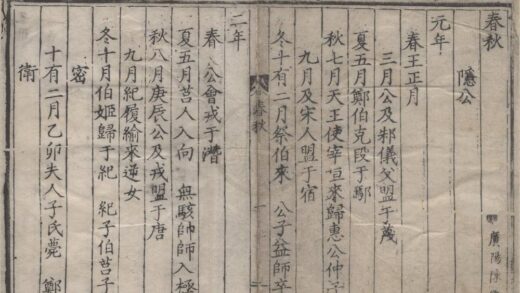 春秋
廣陽陳
隱公
元年
春王正月
三月公及邾儀父盟于蔑
夏五月鄭伯克段于鄢
秋七月天王使宰咺來歸惠公仲子
九月及宋人盟于宿
冬十有二月祭伯來 公子益師卒
春秋 一
二年
春 公會戎于潛
夏五月莒人入向 無駭帥師入極
秋八月庚辰公及戎盟于唐
九月紀履緰來逆女
冬十月伯姬歸于紀 紀子伯莒子
密
十有二月乙卯夫人子氏薨 鄭
衛